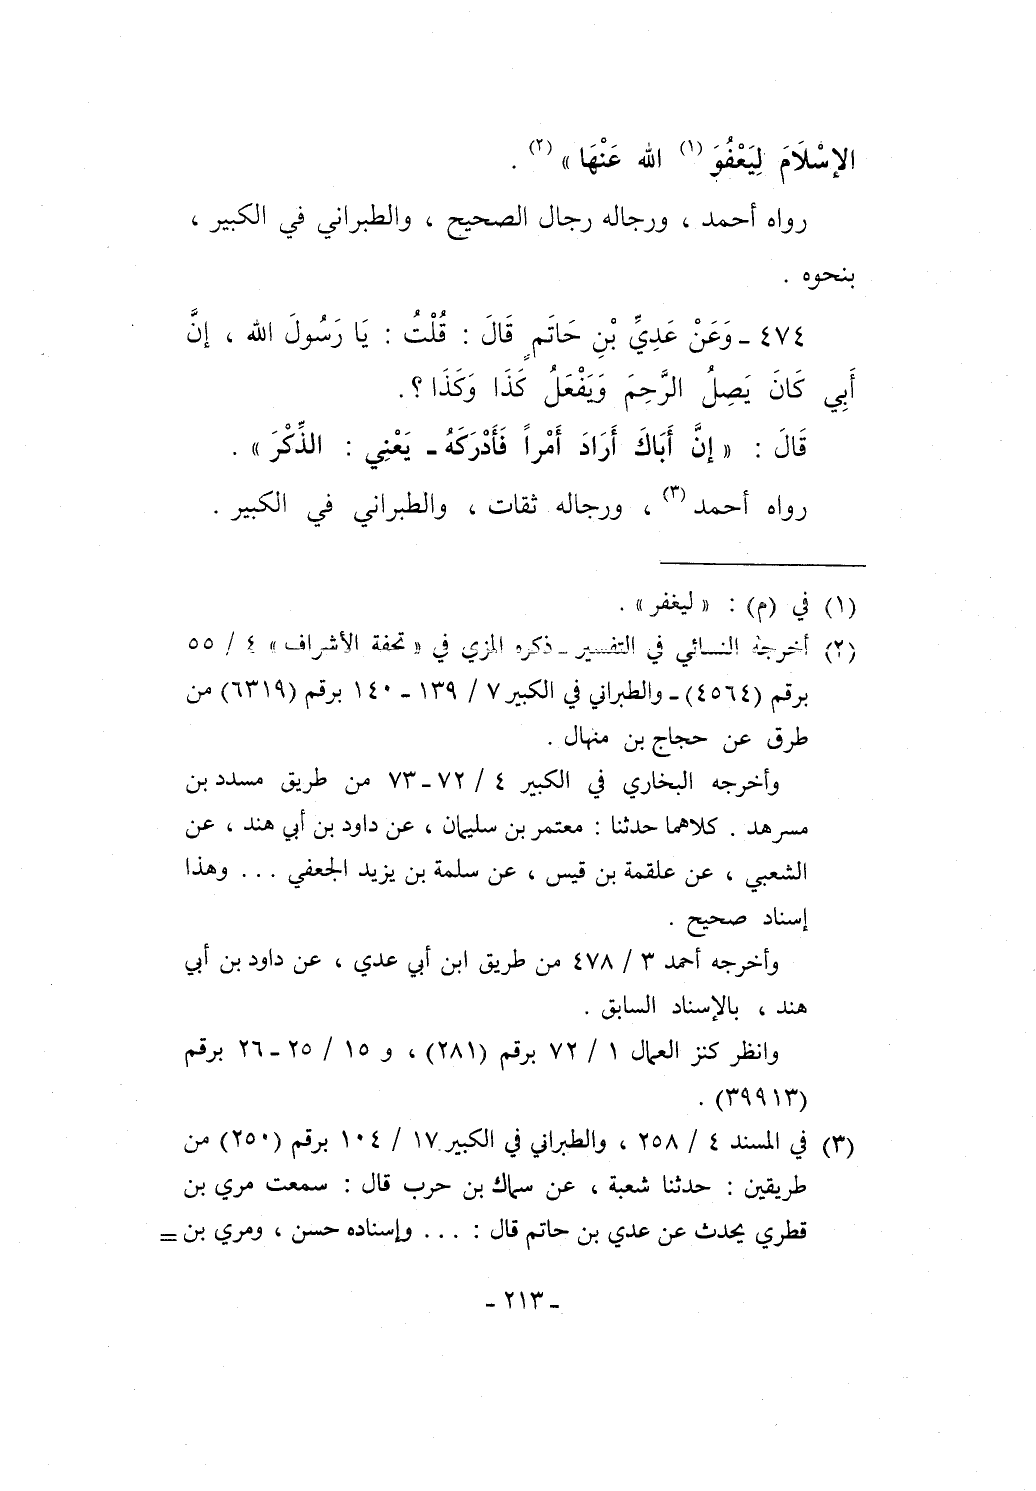 الإسْلَامَ لِيَعْفُوَ (١) الله عَنْهَا » (٢) .
رواه أحمد ، ورجاله رجال الصحيح ، والطبراني في الكبير ،
بنحوه .
٤٧٤ ـ وَعَنْ عَدِيِّ بْنِ حَاتَمٍ قَالَ : قُلْتُ : يَا رَسُولَ الله ، إنَّ
أَبِي كَانَ يَصِلُ الرَّحِمَ وَيَفْعَلُ كَذَا وَكَذَا ؟ .
قَالَ : « إنَّ أَبَاكَ أَرَادَ أَمْراً فَأَدْرَكَهُ ـ يَعْنِي : الذِّكْرَ » .
رواه أحمد (٣) ، ورجاله ثقات ، والطبراني في الكبير .
(١) في (م) : « ليغفر » .
(٢) أخرجه النسائي في التفسير ـ ذكره المزي في « تحفة الأشراف » ٤ / ٥٥
برقم (٤٥٦٤) ـ والطبراني في الكبير ٧ / ١٣٩ ـ ١٤٠ برقم (٦٣١٩) من
طرق عن حجاج بن منهال .
وأخرجه البخاري في الكبير ٤ / ٧٢ ـ ٧٣ من طريق مسدد بن
مسرهد . كلاهما حدثنا : معتمر بن سليمان ، عن داود بن أبي هند ، عن
الشعبي ، عن علقمة بن قيس ، عن سلمة بن يزيد الجعفي ... وهذا
إسناد صحيح .
وأخرجه أحمد ٣ / ٤٧٨ من طريق ابن أبي عدي ، عن داود بن أبي
هند ، بالإسناد السابق .
وانظر كنز العمال ١ / ٧٢ برقم (٢٨١) ، و ١٥ / ٢٥ ـ ٢٦ برقم
(٣٩٩١٣) .
(٣) في المسند ٤ / ٢٥٨ ، والطبراني في الكبير ١٧ / ١٠٤ برقم (٢٥٠) من
طريقين : حدثنا شعبة ، عن سماك بن حرب قال : سمعت مري بن
قطري يحدث عن عدي بن حاتم قال : ... وإسناده حسن ، ومري بن =
ـ ٢١٣ ـ